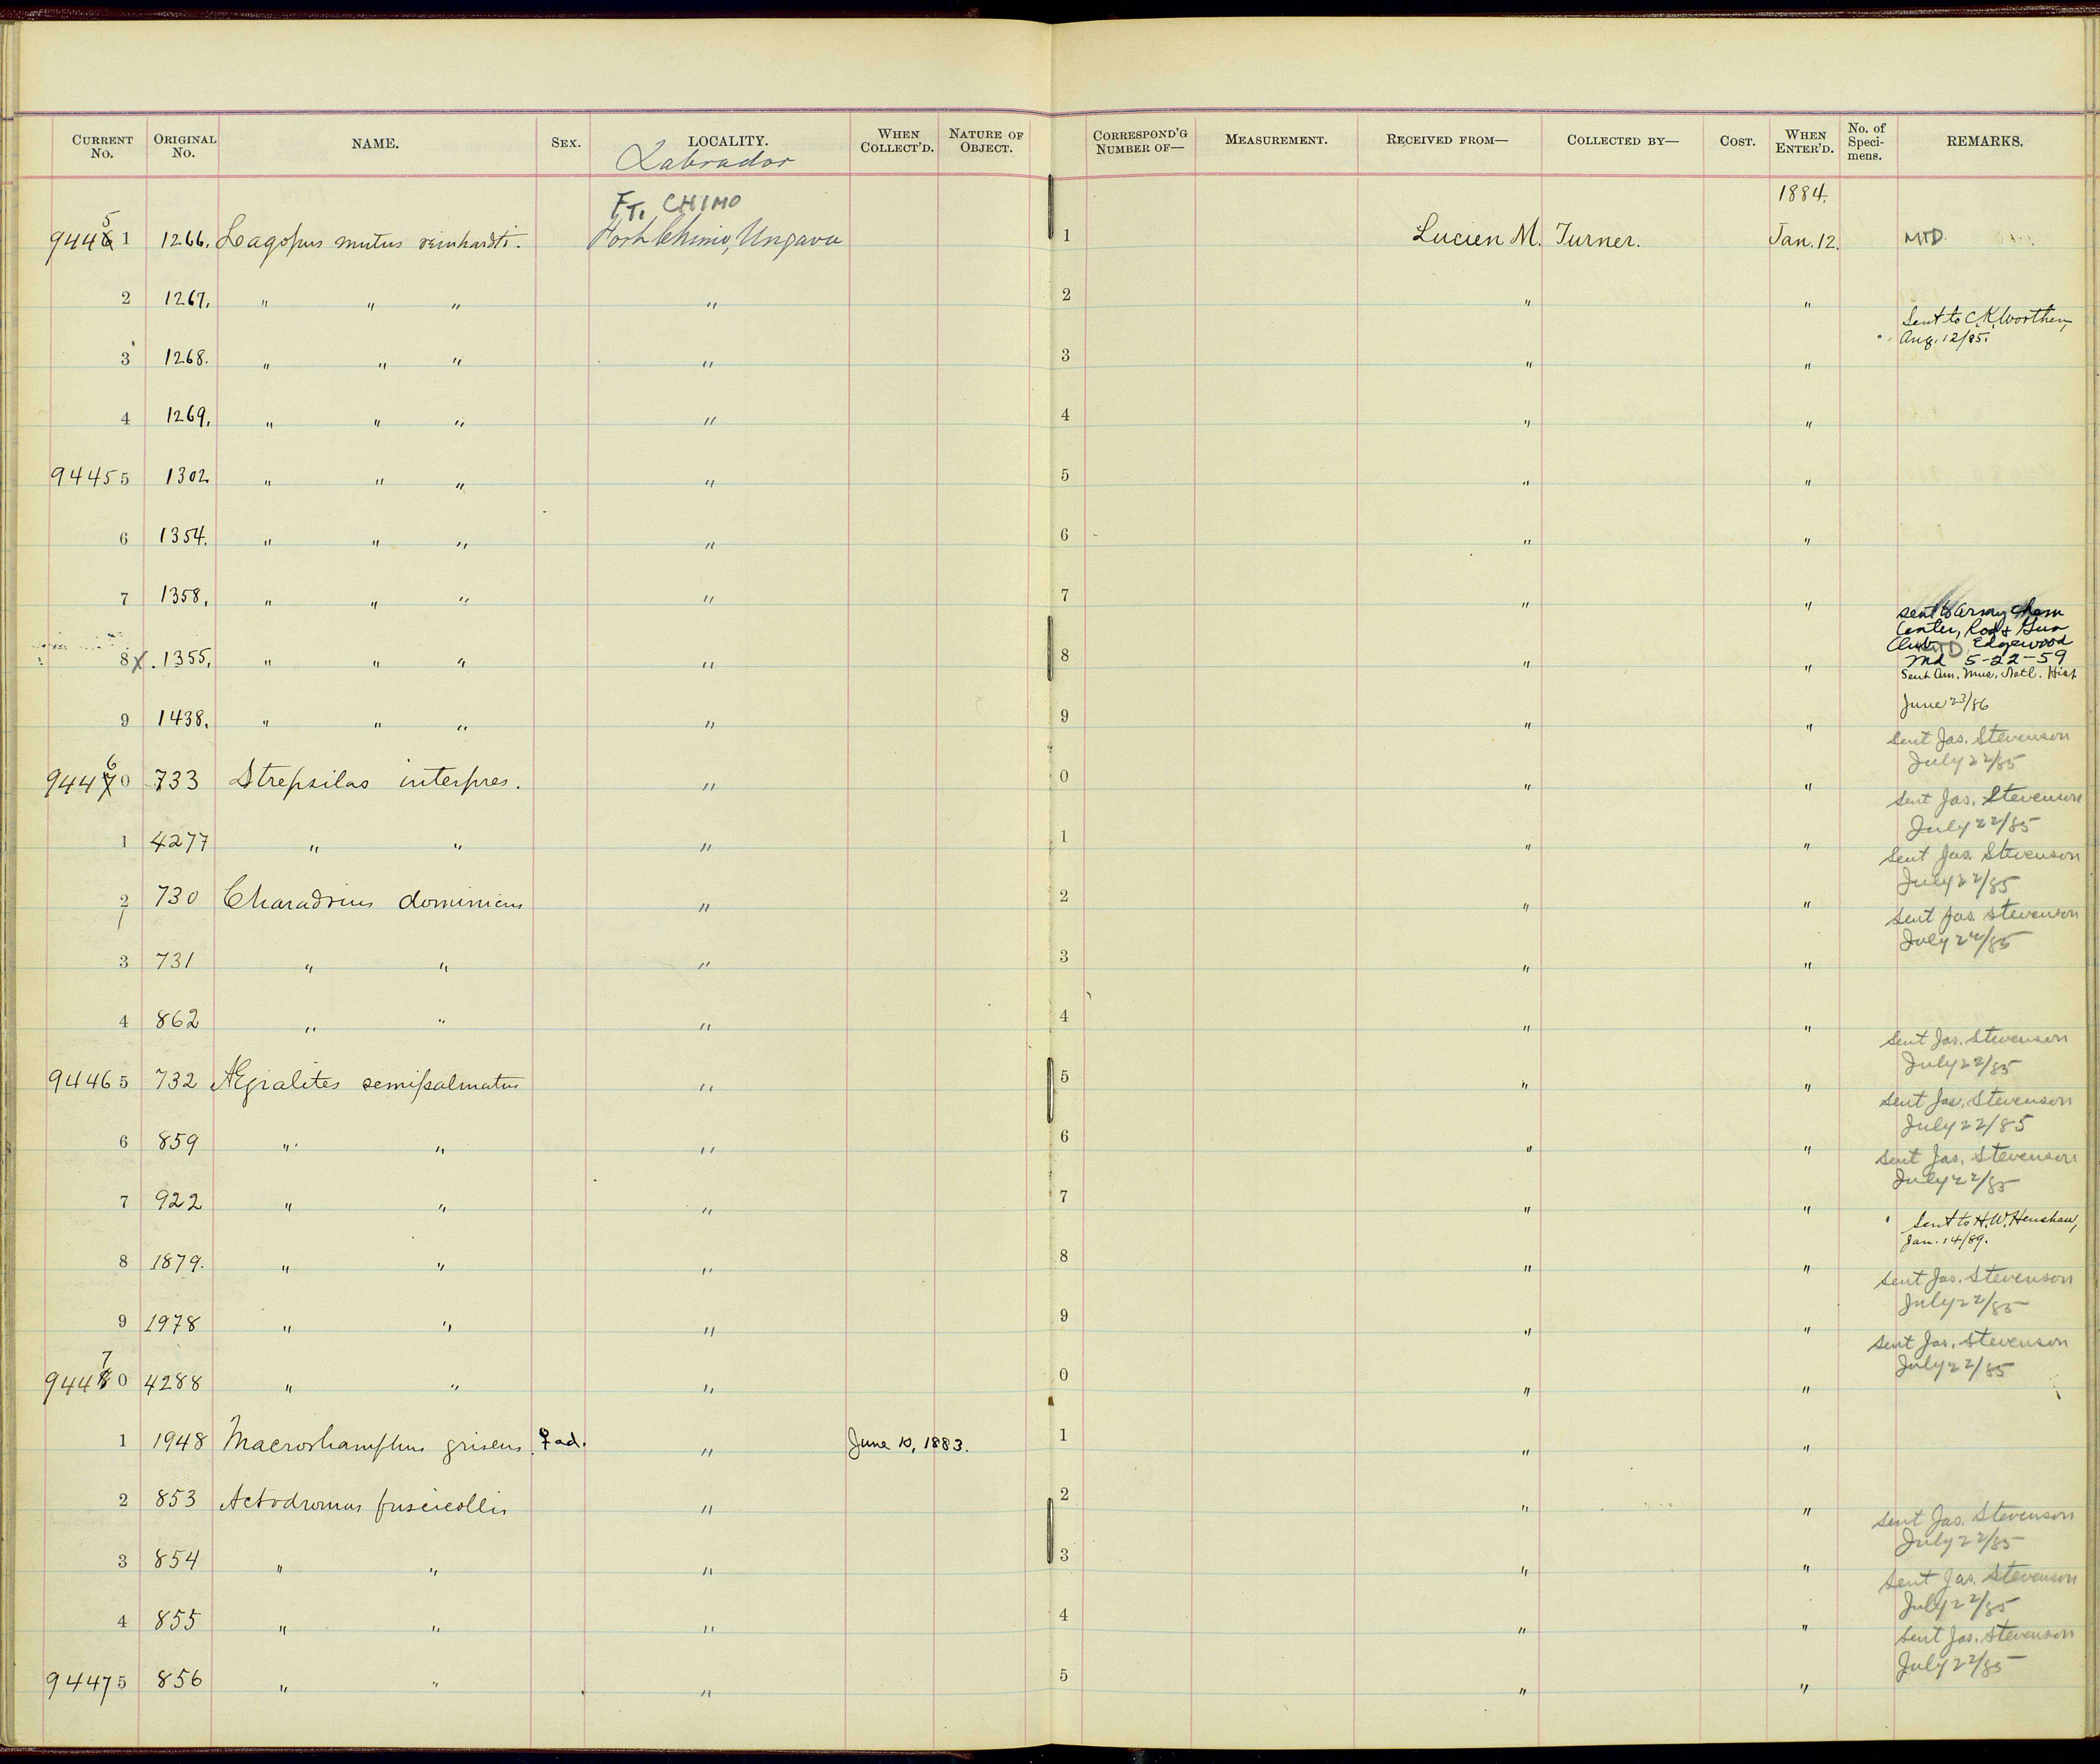 CURRENT No. ORIGINAL No. NAME. SEX. LOCALITY. WHEN COLLECT'D. NATURE OF OBJECT. CORRESPOND'G NUMBER OF— MEASUREMENT. RECEIVED FROM— COLLECTED BY— COST. WHEN ENTER'D. No. of Specimens. REMARKS.
Labrador
FT. CHIMO 1884.
94451 1266. Lagopus mutus reinhardti. Fort Chimo, Ungava 1 Lucien M. Turner. Jan. 12. MTD
2 1267. " " " " 2 " "
Sent to C.K. Worthen,
Aug. 12/85.
3 1268. " " " " 3 " "
4 1269. " " " " 4 " "
94455 1302 " " " " 5 " "
6 1354. " " " " 6 " "
7 1358. " " " " 7 " "
Sent to Army Chem
Center, Rod & Gun
Club Edgewood
MTD
Md 5-22-59
8 X 1355. " " " " 8 " "
Sent Am. Mus. Natl. Hist
June 23/86
9 1438. " " " " 9 " "
Sent Jas. Stevenson
July 22/85
94460 733 Strepsilas interpres. " 0 " "
Sent Jas. Stevenson
July 22/85
1 4277 " " " 1 " "
Sent Jas. Stevenson
July 22/85
2 730 Charadrius dominicus " 2 " "
Sent Jas. Stevenson
July 22/85
3 731 " " " 3 " "
4 862 " " " 4 " "
Sent Jas. Stevenson
July 22/85
94465 732 Ægialites semipalmatus " 5 " "
Sent Jas. Stevenson
July 22/85
6 859 " " " 6 " "
Sent Jas. Stevenson
July 22/85
7 922 " " " 7 " "
Sent to H. W. Henshaw,
Jan. 14/89.
8 1879. " " " 8 " "
Sent Jas. Stevenson
July 22/85
9 1978 " " " 9 " "
Sent Jas. Stevenson
July 22/85
94470 4288 " " " 0 " "
1 1948 Macrorhamphus griseus. ♀ ad. " June 10, 1883. 1 " "
2 853 Actodromas fuscicollis " 2 " "
Sent Jas. Stevenson
July 22/85
3 854 " " " 3 " "
Sent Jas. Stevenson
July 22/85
4 855 " " " 4 " "
Sent Jas. Stevenson
July 22/85
94475 856 " " " 5 " "